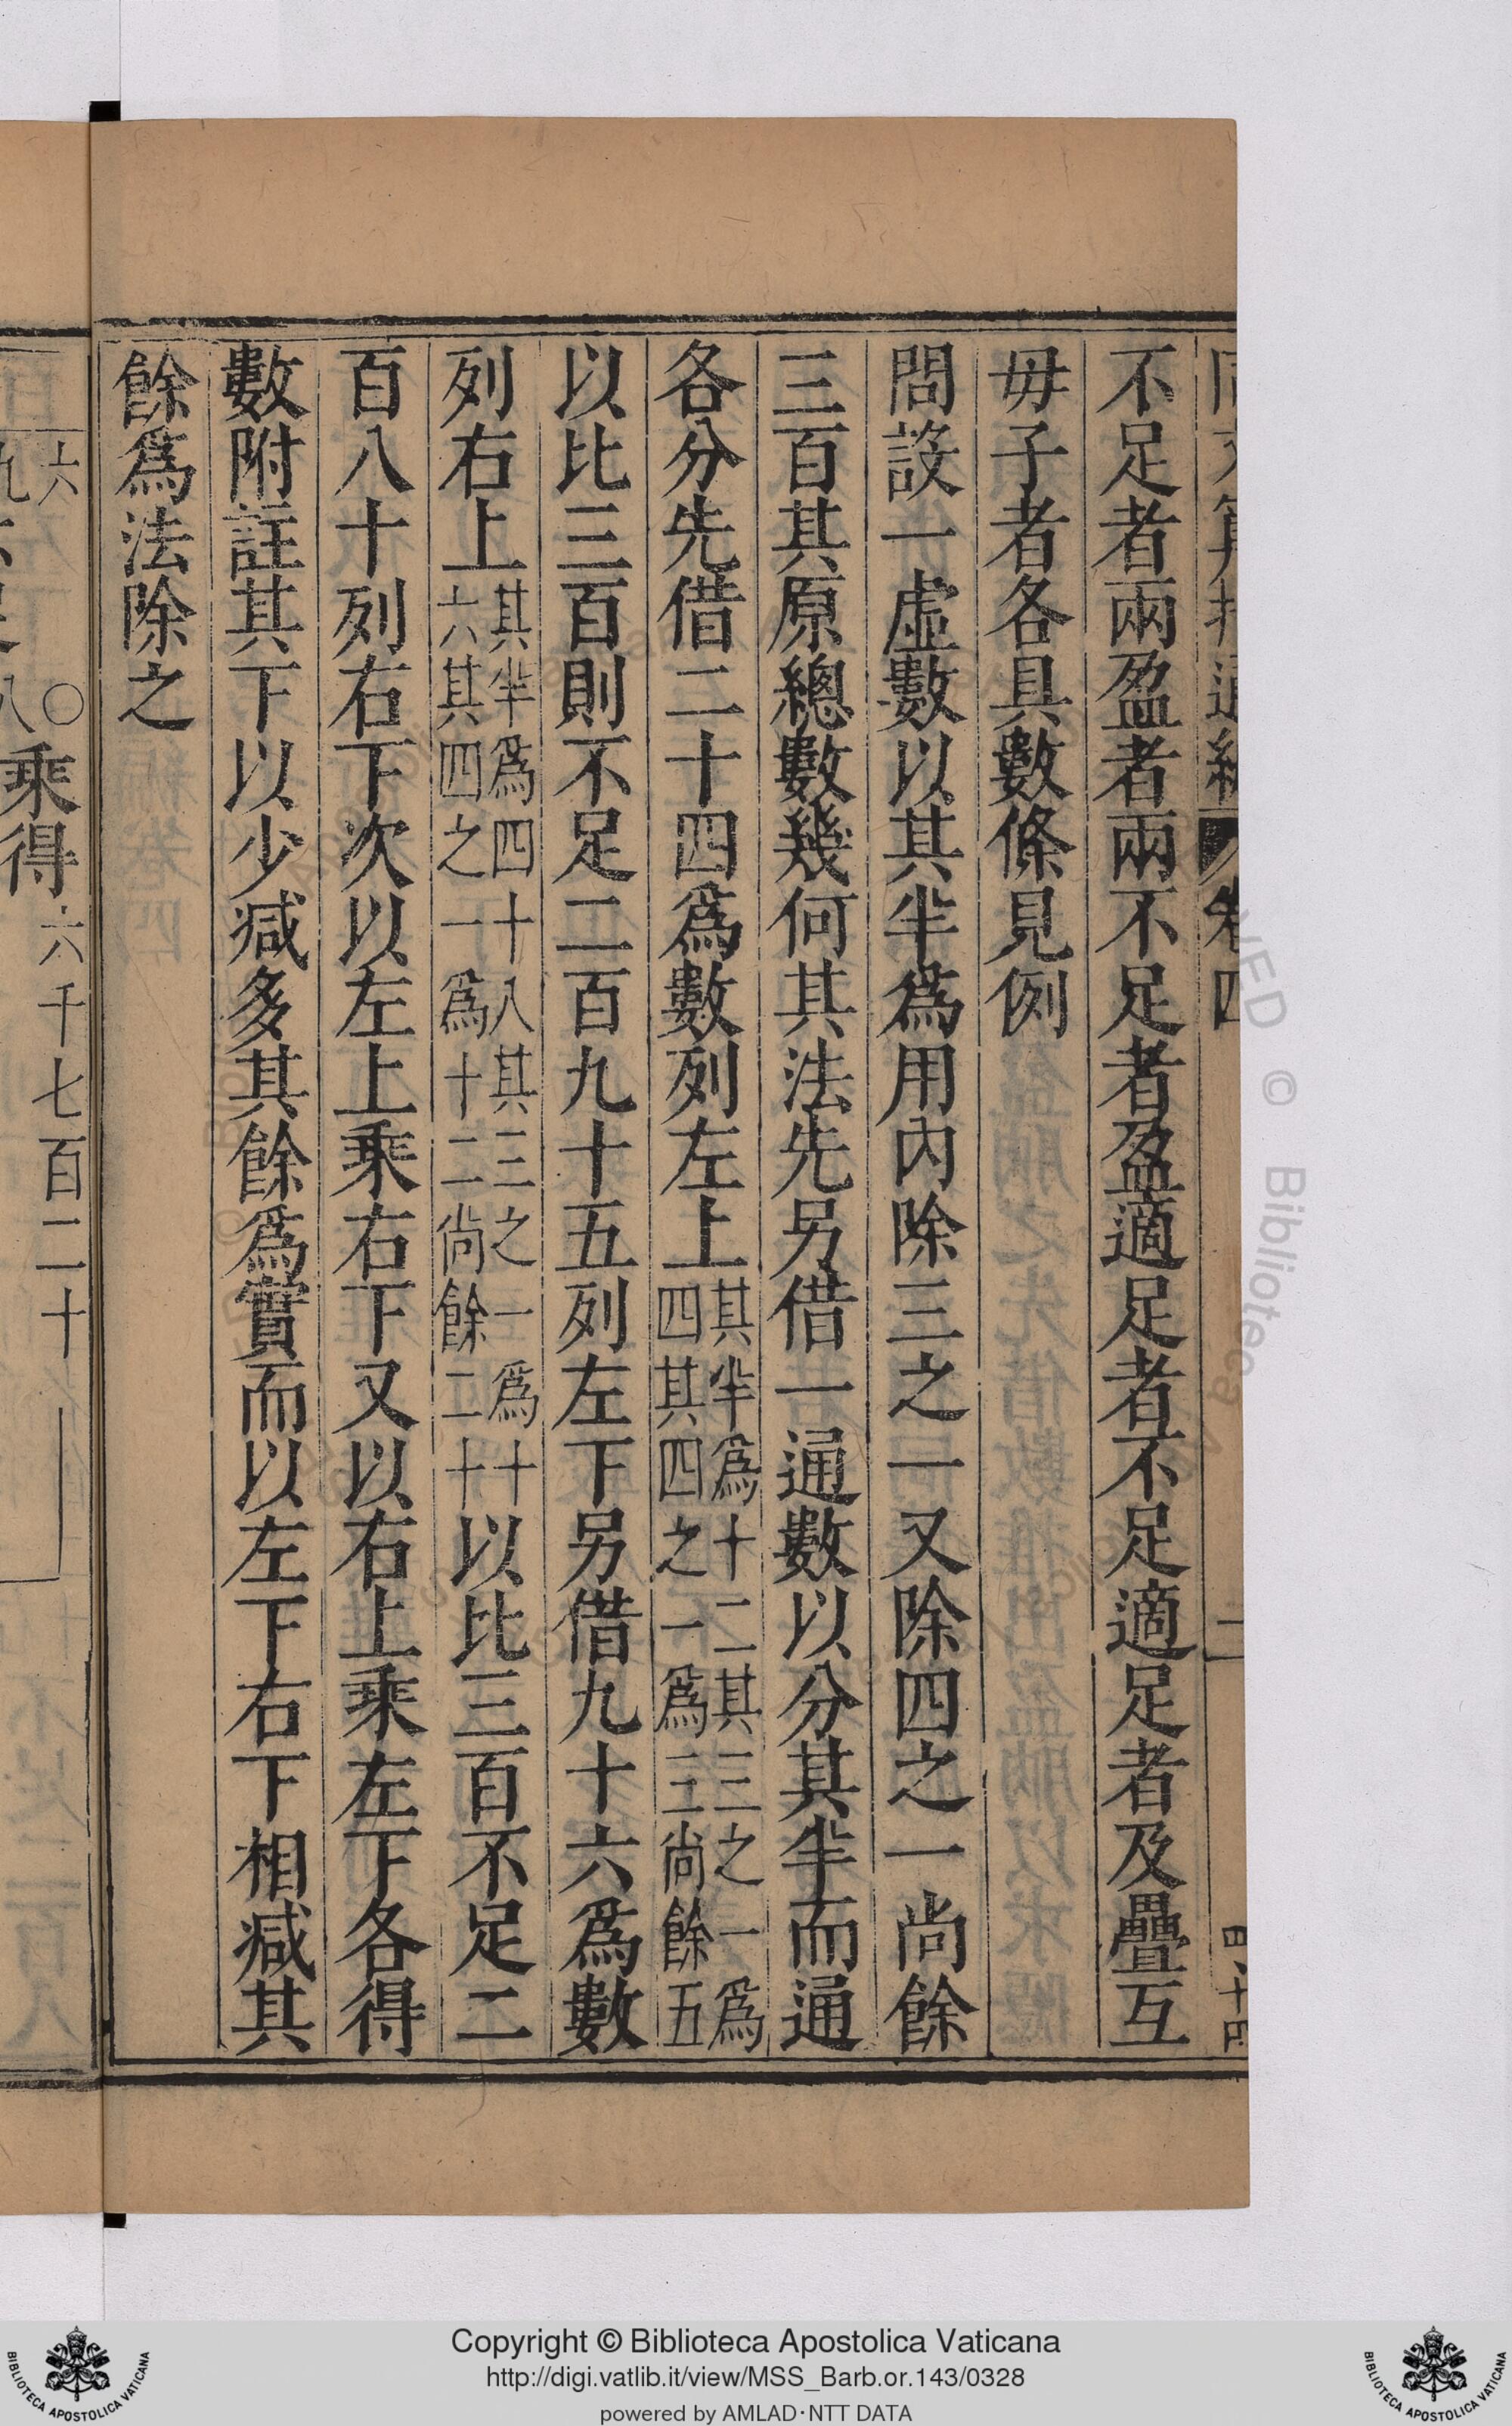 不足者兩盈者兩不足者盈適足者不足適足者及疊互
毋子者各具數條見例
問設一虛數以其半為用內除三之一又除四之一尚餘
三百其原總數幾何其法先另借一通數以分其半而通
各分先借二十四為數列左上其半為十二其三之一為四其四之一為三尚餘五
以比三百則不足二百九十五列左下另借九十六為數
列右上其半為四十八其三之一為十六其四之一為十二尚餘二十以比三百不足二
百八十列右下次以左上乘右下又以右上乘左下各得
數附註其下以少減多其餘為實而以左下右下相減其
餘為法除之
六千七百二十
乘得
Copyright © Biblioteca Apostolica Vaticana
http://digi.vatlib.it/view/MSS_Barb.or.143/0328
powered by AMLAD·NTT DATA
BIBLIOTECA APOSTOLICA VATICANA
BIBLIOTECA APOSTOLICA VATICANA